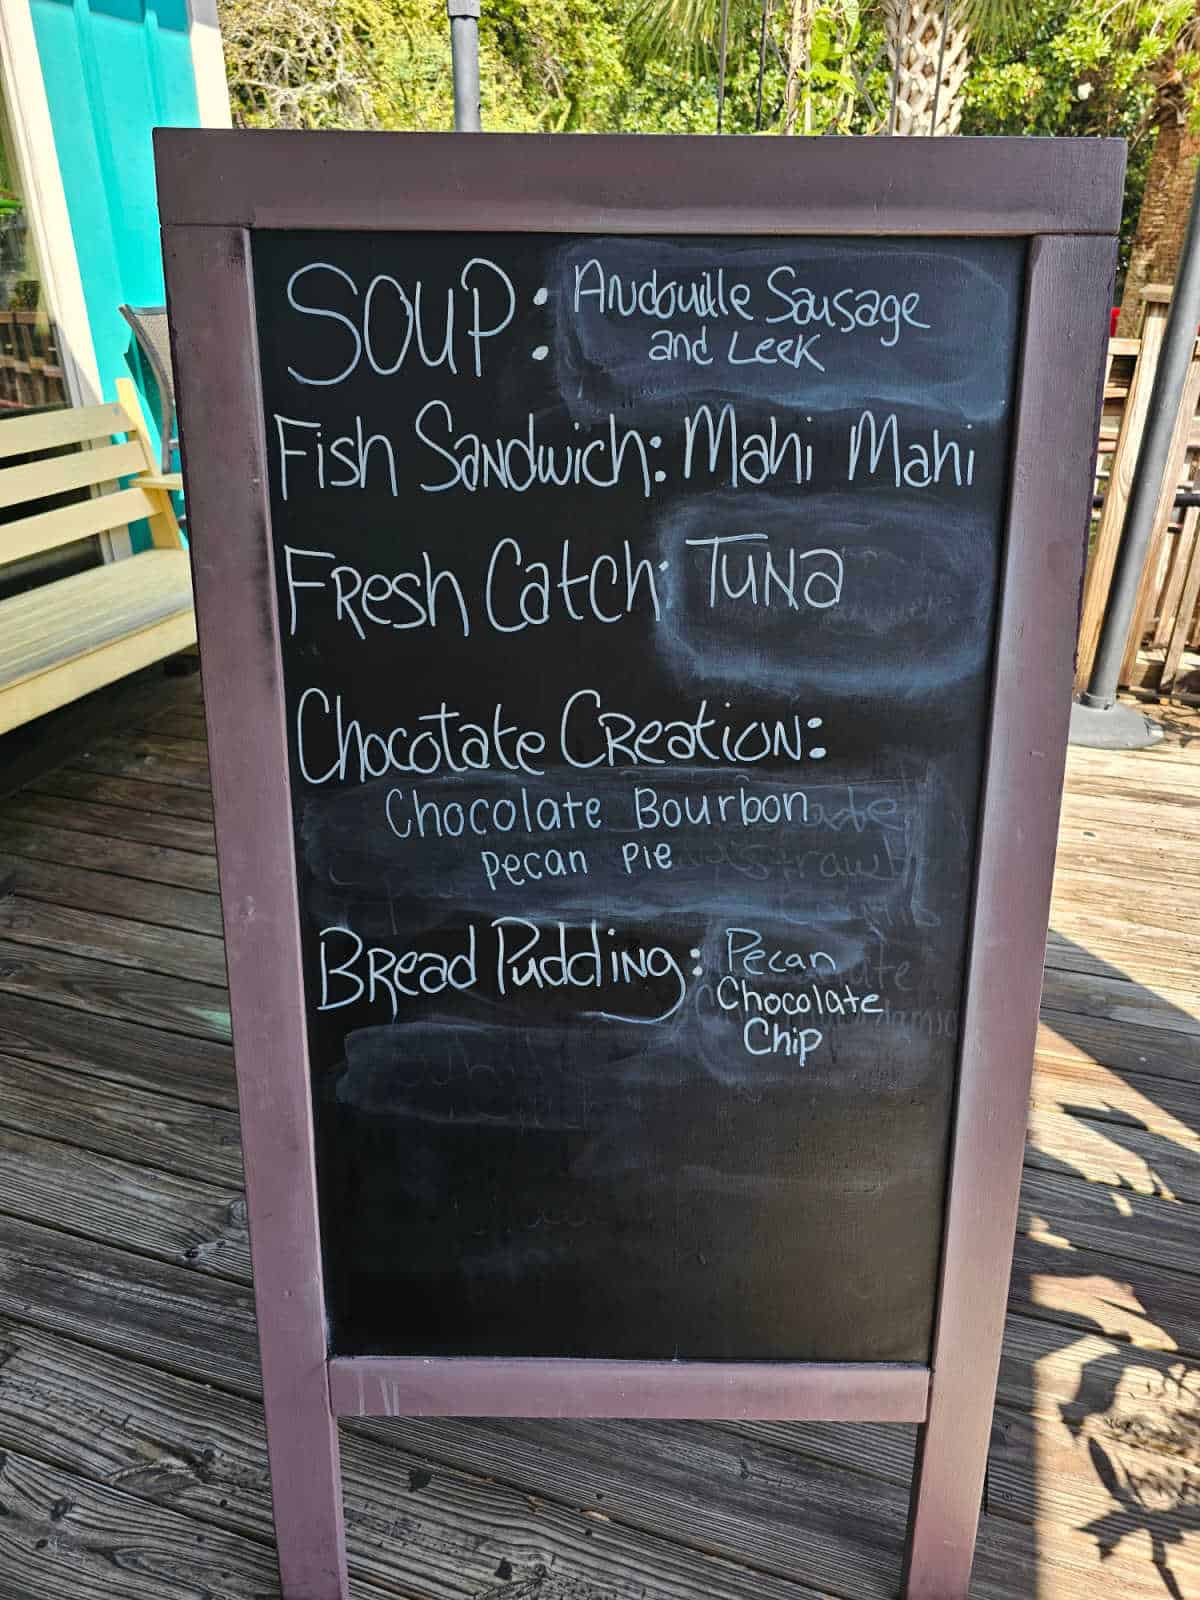 SOUP: Andouille Sausage
and Leek
Fish Sandwich: Mahi Mahi
Fresh Catch: TUNA
Chocolate Creation:
Chocolate Bourbon
Pecan Pie
Bread Pudding: Pecan
Chocolate
Chip